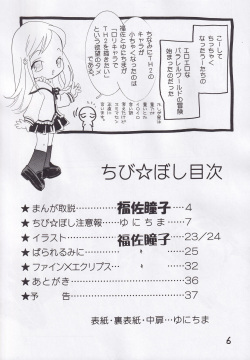 こーして
ちっちゃく
なったうーたちの
エロエロな
パラレルワールドの冒険
始まったのだった
ちなみにTH2の
キャラが
小ちゃくなったのは
福佐とゆにちまが
「ロリキャラで
TH2を描きたい」
という欲望のタメ
である。
ちび☆ぼし目次
★まんが取説 福佐瞳子 4
★ちび☆ぼし注意報 ゆにちま 7
★イラスト 福佐瞳子 23/24
★ぱられるみに 〃 25
★ファイン×エクリプス 〃 32
★あとがき 36
★予告 37
表紙・裏表紙・中扉…ゆにちま
6